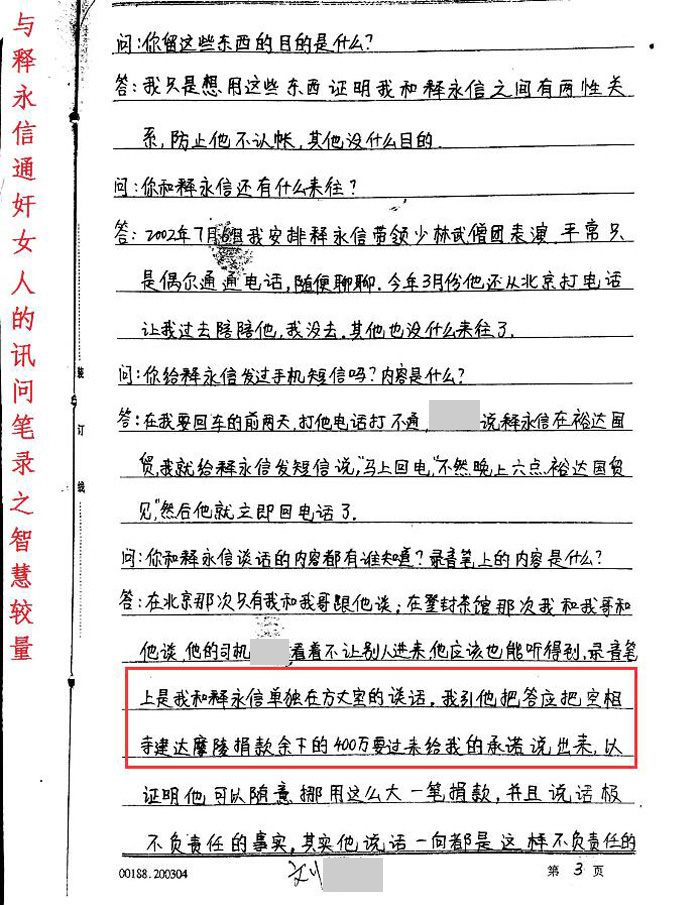 与释永信通奸女人的讯问笔录之智慧较量
问:你留这些东西的目的是什么?
答:我只是想用这些东西证明我和释永信之间有两性关
系,防止他不认帐,其他没什么目的.
问:你和释永信还有什么来往?
答:2002年7月 我安排释永信带领少林武僧团表演.平常只
是偶尔通通电话,随便聊聊.今年3月份他还从北京打电话
让我过去陪陪他,我没去.其他也没什么来往了.
问:你给释永信发过手机短信吗?内容是什么?
答:在我要回车的前两天,打他电话打不通, 说释永信在裕达国
贸,我就给释永信发短信说,"马上回电,"不然晚上六点裕达国贸
见,"然后他就立即回电话了.
问:你和释永信谈话的内容都有谁知道?录音笔上的内容是什么?
答:在北京那次只有我和我哥跟他谈;在登封茶馆那次我和我哥和
他谈,他的司机 看着不让别人进来,他应该也能听得到,录音笔
上是我和释永信单独在方丈室的谈话,我引他把答应把空相
寺建达摩陵捐款余下的400万要过来给我的承诺说出来,以
证明他可以随意挪用这么大一笔捐款,并且说话极
不负责任的事实,其实他说话一向都是这样不负责任的
装
订
线
00188.200304
刘
第 3 页